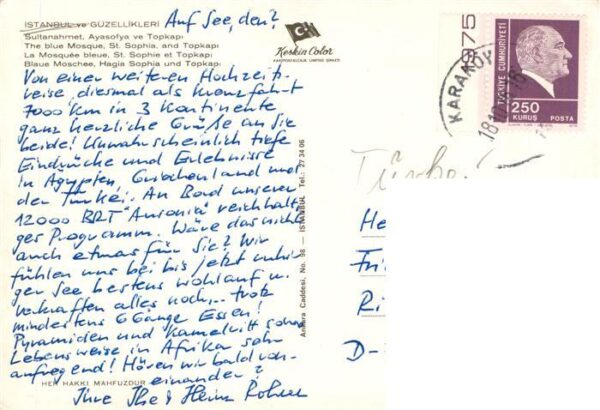 Auf See, den?
İSTANBUL ve GÜZELLİKLERİ
Sultanahmet, Ayasofya ve Topkapı
The blue Mosque, St. Sophia, and Topkapı
La Mosquée bleue, St. Sophie et Topkapı
Blaue Moschee, Hagia Sophia und Topkapı
Keskin Color
Von einer weiteren Hochzeits-
reise, diesmal als Kreuzfahrt
7000 km in 3 Kontinente
ganz herzliche Grüße an Sie
beide! Unwahrscheinlich tiefe
Eindrücke und Erlebnisse
in Ägypten, Griechenland und
der Türkei. An Bord unserer
12000 BRT "Ausonia" reichhalti-
ges Programm. Wäre das nicht
auch etwas für Sie? Wir
fühlen uns bei bis jetzt ruhi-
ger See bestens wohlauf u.
verkraften alles noch... trotz
mindestens 6 Gänge Essen!
Pyramiden und Kamelritt sowie
Lebensweise in Afrika sehr
aufregend! Hören wir bald von-
einander?
Ihre Ilse & Heinz
HER HAKKI MAHFUZDUR
Ankara Caddesi, No. 98 — İSTANBUL Tel.: 27 34 06
1975
TÜRKİYE CUMHURİYETİ
250
KURUŞ
POSTA
KARAKÖY
He
Fri
Ri
D-